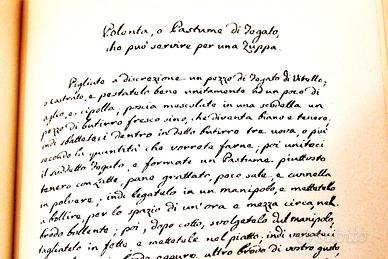 Polonta, o Pastume di Fegato,
che può servire per una Zuppa.
Pigliate a discrezione un pezzo di Fegato di Vitello,
o castrato, e pestatelo bene unitamente ad un poco di
aglio, e cipolla, poscia mescolate in una scudella un
pezzo di butirro fresco sino, che diventa biano e tenero,
indi sbatteteci dentro in detto butirro tre uova, o più
secondo la quantità che vorrete farne; poi uniteci
il suddetto Fegato, e formate un Pastume piuttosto
tenero con latte, pane grattato, poco sale, e cannella
in polvere, indi legatelo in un manipolo, e mettetelo
a bollire, per lo spazio di un'ora e mezza circa nel
brodo bollente; poi, dopo cotto, svolgetelo dal manipolo,
tagliatelo in fette e mettetele nel piatto, indi versateci
brodo oppure, altro brodo di vostro gusto,